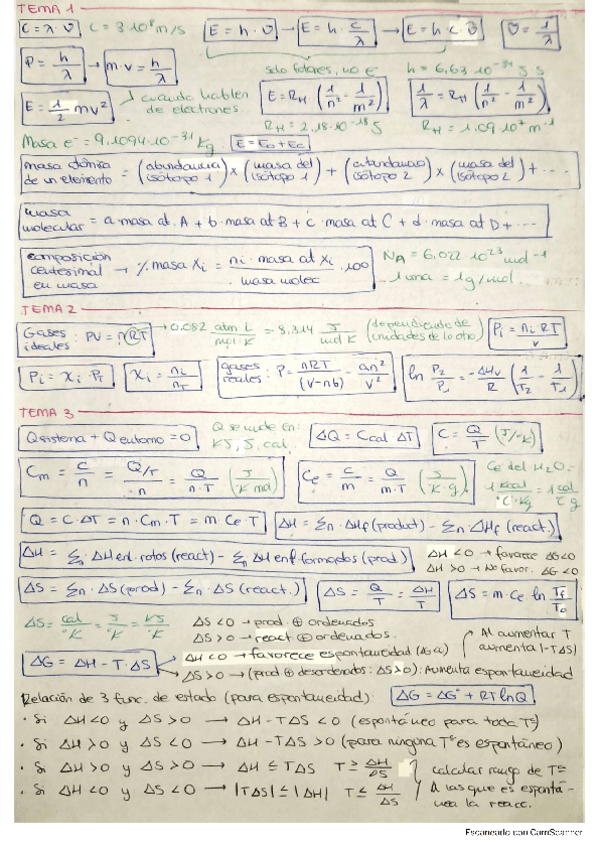 TEMA 1
C = λ · ν   C = 3·10⁸ m/s   E = h · ν → E = h · c/λ → E = h · c · ν̄   ν̄ = 1/λ
P = h/λ → m·v = h/λ   solo fotones, no e⁻   h = 6,63·10⁻³⁴ J s
E = 1/2 mv²   cuando hablen de electrones   E = R_H (1/n² - 1/m²)   1/λ = R_H (1/n² - 1/m²)
R_H = 2,18·10⁻¹⁸ J   R_H = 1,09·10⁷ m⁻¹
Masa e⁻ = 9,1094·10⁻³¹ Kg   E = E₀ + Ec
masa atómica de un elemento = (abundancia isótopo 1) × (masa del isótopo 1) + (abundancia isótopo 2) × (masa del isótopo 2) + ...
masa molecular = a · masa at. A + b · masa at B + c · masa at C + d · masa at D + ...
composición centesimal en masa → % masa Xi = ni · masa at Xi / masa molec · 100   N_A = 6,022 10²³ mol⁻¹
1 uma = 1g/mol
TEMA 2
Gases ideales: PV = nRT → 0,082 atm L / mol·K = 8,314 J / mol K (dependiendo de unidades de lo otro)   Pi = ni RT / V
Pi = Xi P_T   Xi = ni / n_T   gases reales: P = nRT / (V-nb) - an²/V²   ln P₂/P₁ = -ΔHv/R (1/T₂ - 1/T₁)
TEMA 3
Q sistema + Q entorno = 0   Q se mide en: KJ, J, cal   ΔQ = Ccal · ΔT   C = Q/T (J/°K)
Cm = C/n = Q/T / n = Q / n·T (J / °K mol)   Ce = C/m = Q / m·T (J / °K·g)   Ce del H₂O = 1 Kcal / °C·Kg = 1 cal / °C g
Q = C·ΔT = n·Cm·T = m·Ce·T   ΔH = Σn · ΔHf (product) - Σn · ΔHf (react.)
ΔH = Σn · ΔH enl. rotos (react) - Σn · ΔH enl. formados (prod)   ΔH < 0 → favorece ΔG<0
ΔH > 0 → No favor. ΔG < 0
ΔS = Σn · ΔS (prod) - Σn · ΔS (react.)   ΔS = Q/T = ΔH/T   ΔS = m·Ce ln Tf/To
ΔS = cal/°K = J/°K = KJ/°K   ΔS<0 → prod. ⊕ ordenados
ΔS > 0 → react ⊕ ordenados.   Al aumentar T aumenta |-TΔS|
ΔG = ΔH - T·ΔS   ΔH < 0 → favorece espontaneidad
ΔS > 0 → (prod ⊕ desordenados: ΔS>0): Aumenta espontaneidad
Relación de 3 func. de estado (para espontaneidad):   ΔG = ΔG° + RT lnQ
· Si ΔH < 0 y ΔS > 0 → ΔH - TΔS < 0 (espontáneo para toda Tª)
· Si ΔH > 0 y ΔS < 0 → ΔH - TΔS > 0 (para ninguna Tª es espontáneo)
· Si ΔH > 0 y ΔS > 0 → ΔH ≤ TΔS   T ≥ ΔH/ΔS   calcular rango de Tª
· Si ΔH < 0 y ΔS < 0 → |TΔS| ≤ |ΔH|   T ≤ ΔH/ΔS   A las que es espontánea la reacc.
Escaneado con CamScanner